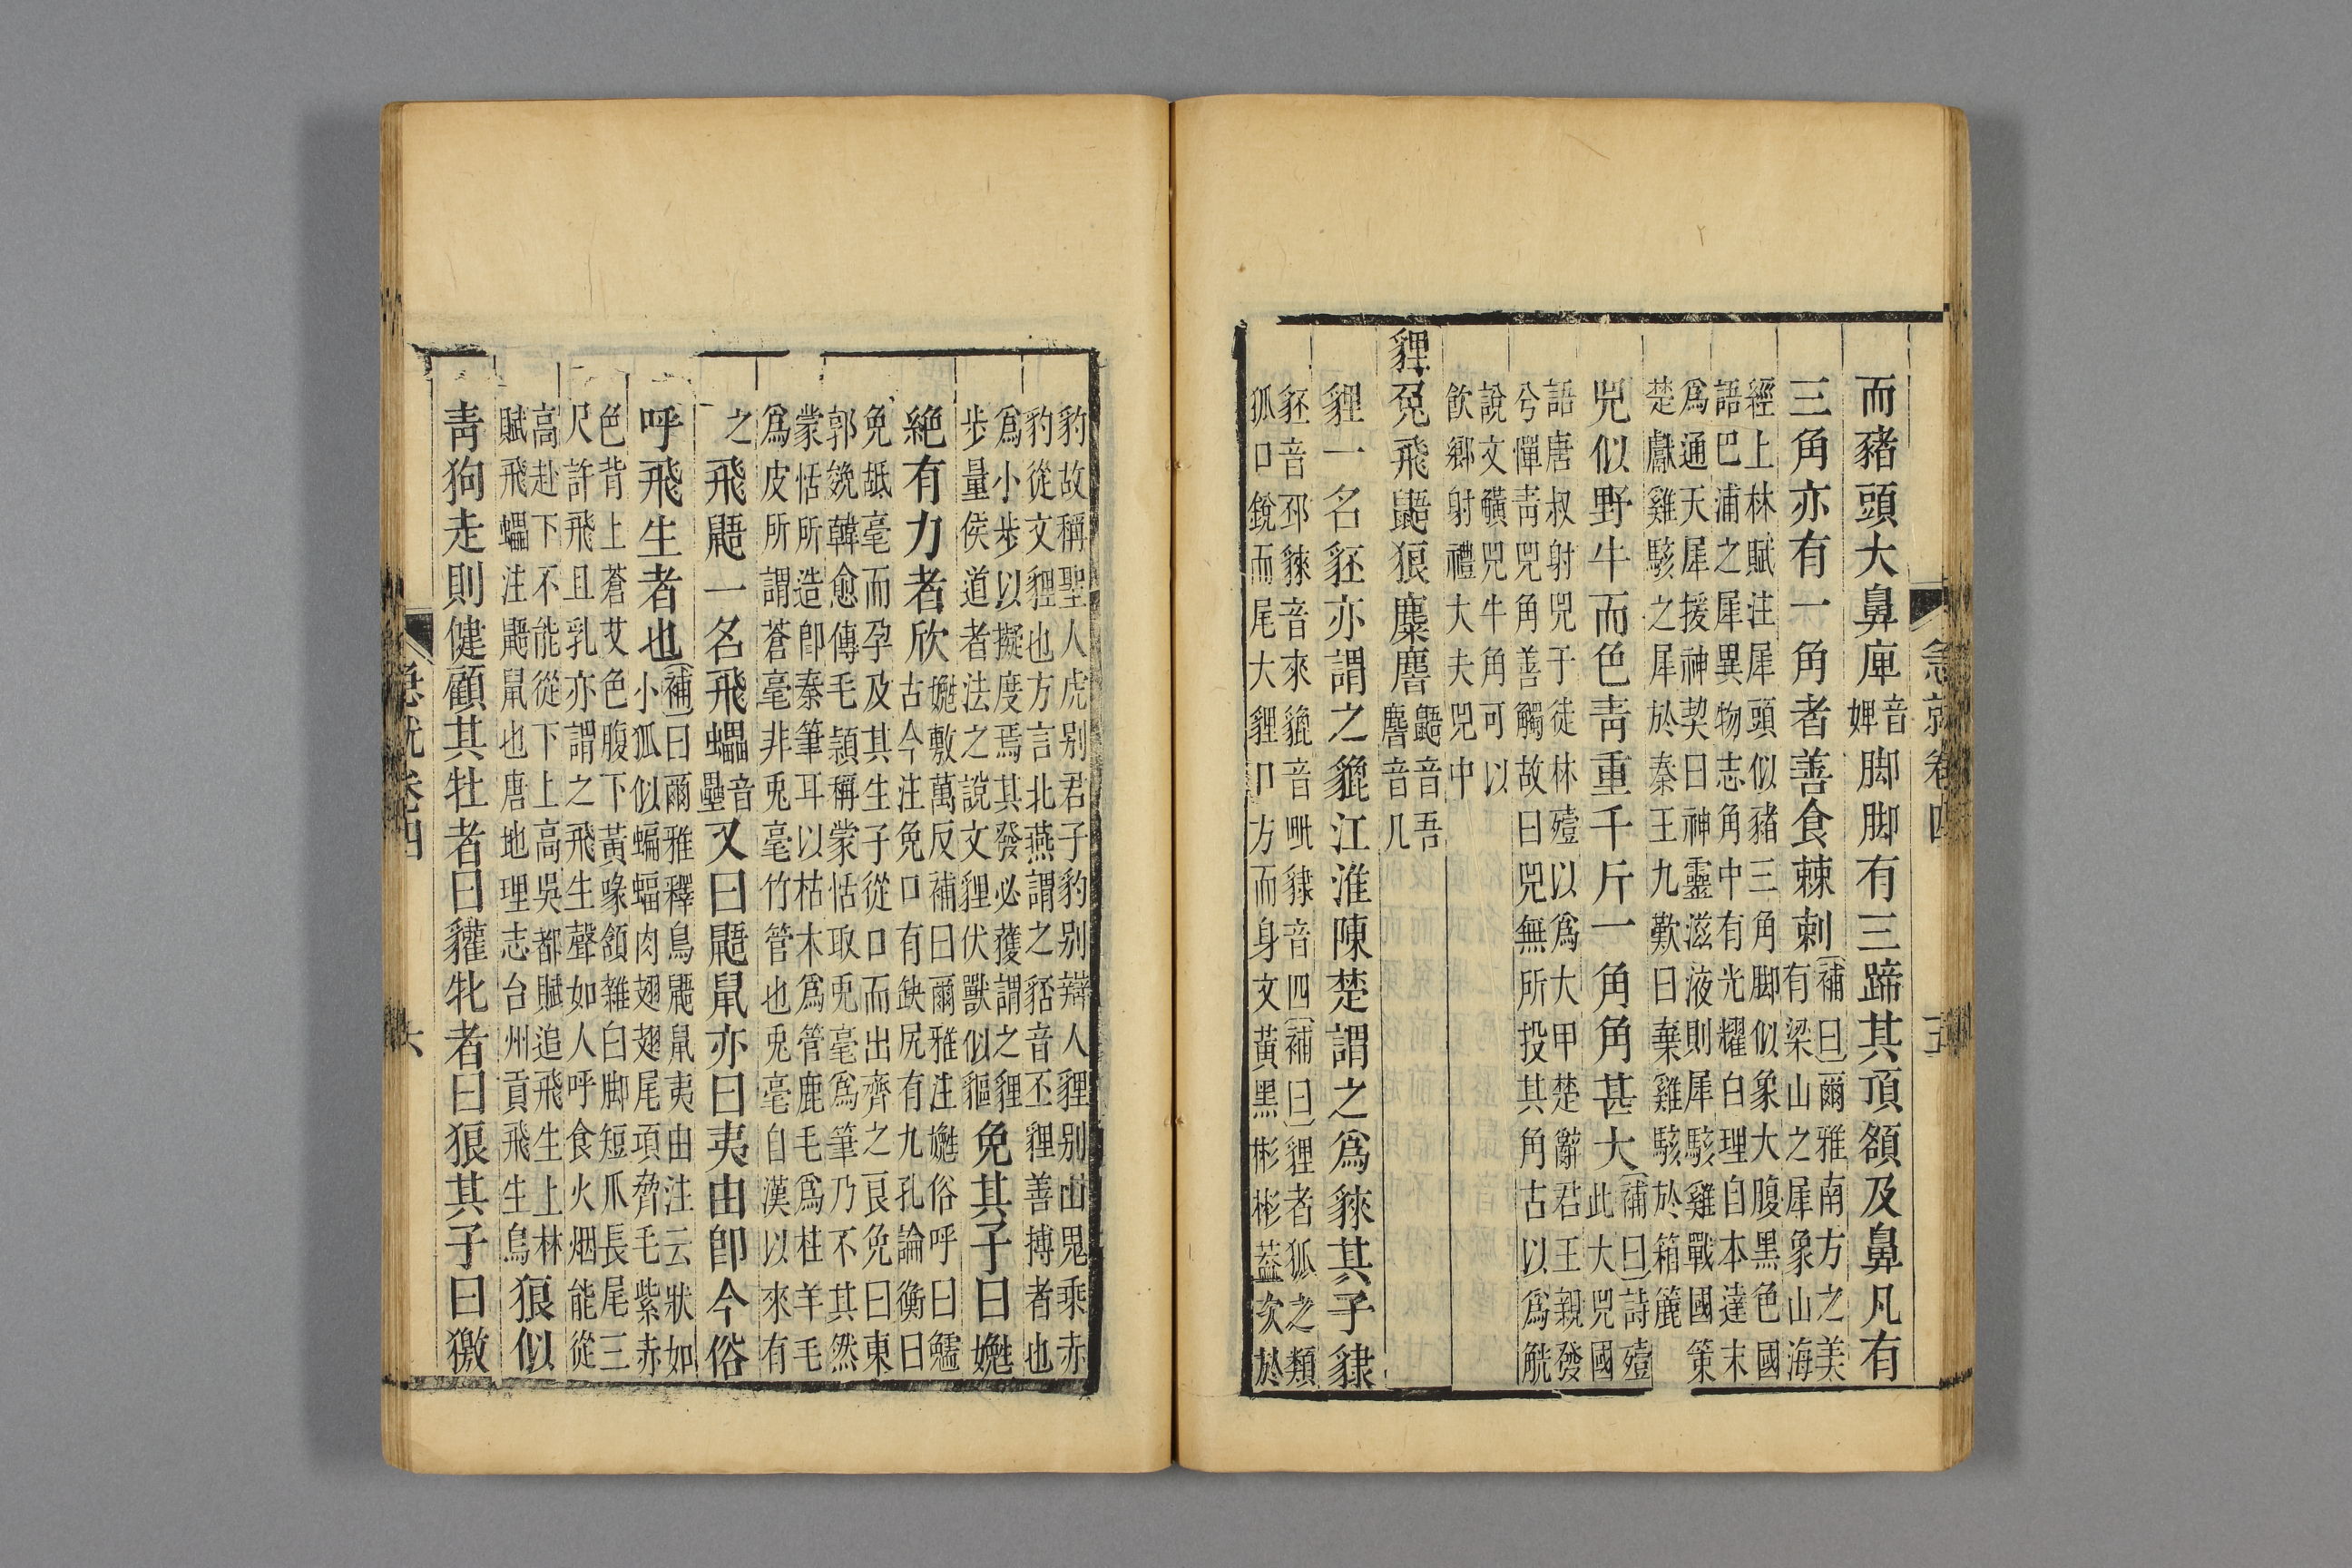 急就卷四
而豬頭大鼻庳音婢脚脚有三蹄其頂額及鼻凡有
三角亦有一角者善食棘刺補曰爾雅南方之美有梁山之犀象山海
經上林賦注犀頭似豬三角脚似象大腹黑色國
語巴浦之犀異物志角中有光耀白理自本達末
爲通天犀援神契曰神靈滋液則犀駭雞戰國策
楚獻雞駭之犀於秦王九歎曰棄雞駭於箱簏
兕似野牛而色青重千斤一角角甚大補曰詩殪此大兕國
語唐叔射兕于徒林殪以爲大甲楚辭君王親發
兮憚青兕兕角善觸故曰兕無所投其角古以爲觥
說文㺔兕牛角可以
飲鄉射禮大夫兕中
貍兔飛鼯狼麋麐鼯音吾麐音几
貍一名豾亦謂之貔江淮陳楚謂之爲䅘其子貄
豾音邳䅘音來貔音毗貄音四補曰貍者狐之類
狐口銳而尾大貍口方而身文黃黑彬彬蓋次於
豹故稱聖人虎别君子豹别辯人貍别山鬼乘赤
豹從文貍也方言北燕謂之貊音丕貍善搏者也
爲小步以擬度焉其發必獲謂之貍
步量侯道者法之說文貍伏獸似貙兔其子曰㝃
絶有力者欣㝃敷萬反補曰爾雅注㝃俗呼曰䨲古今注兔口有缺尻有九孔論衡曰
兔舐毫而孕及其生子從口而出齊之良兔曰東
郭㕙韓愈傳毛穎稱蒙恬取兎毫爲筆乃不其然
蒙恬所造卽秦筆耳以枯木爲管鹿毛爲柱羊毛
爲皮所謂蒼毫非兎毫竹管也兎毫自漢以來有
之飛鼯一名飛蠝音壘又曰鼯鼠亦曰夷由卽今俗
呼飛生者也補曰爾雅釋鳥鼯鼠夷由注云狀如小狐似蝙蝠肉翅翅尾項脅毛紫赤
色背上蒼艾色腹下黃喙頷雜白脚短爪長尾三
尺許飛且乳亦謂之飛生聲如人呼食火烟能從
高赴下不能從下上高吳都賦追飛生上林
賦飛蠝注鼯鼠也唐地理志台州貢飛生鳥狼似
青狗走則健顧其牡者曰貛牝者曰狼其子曰獥
急就卷四
六